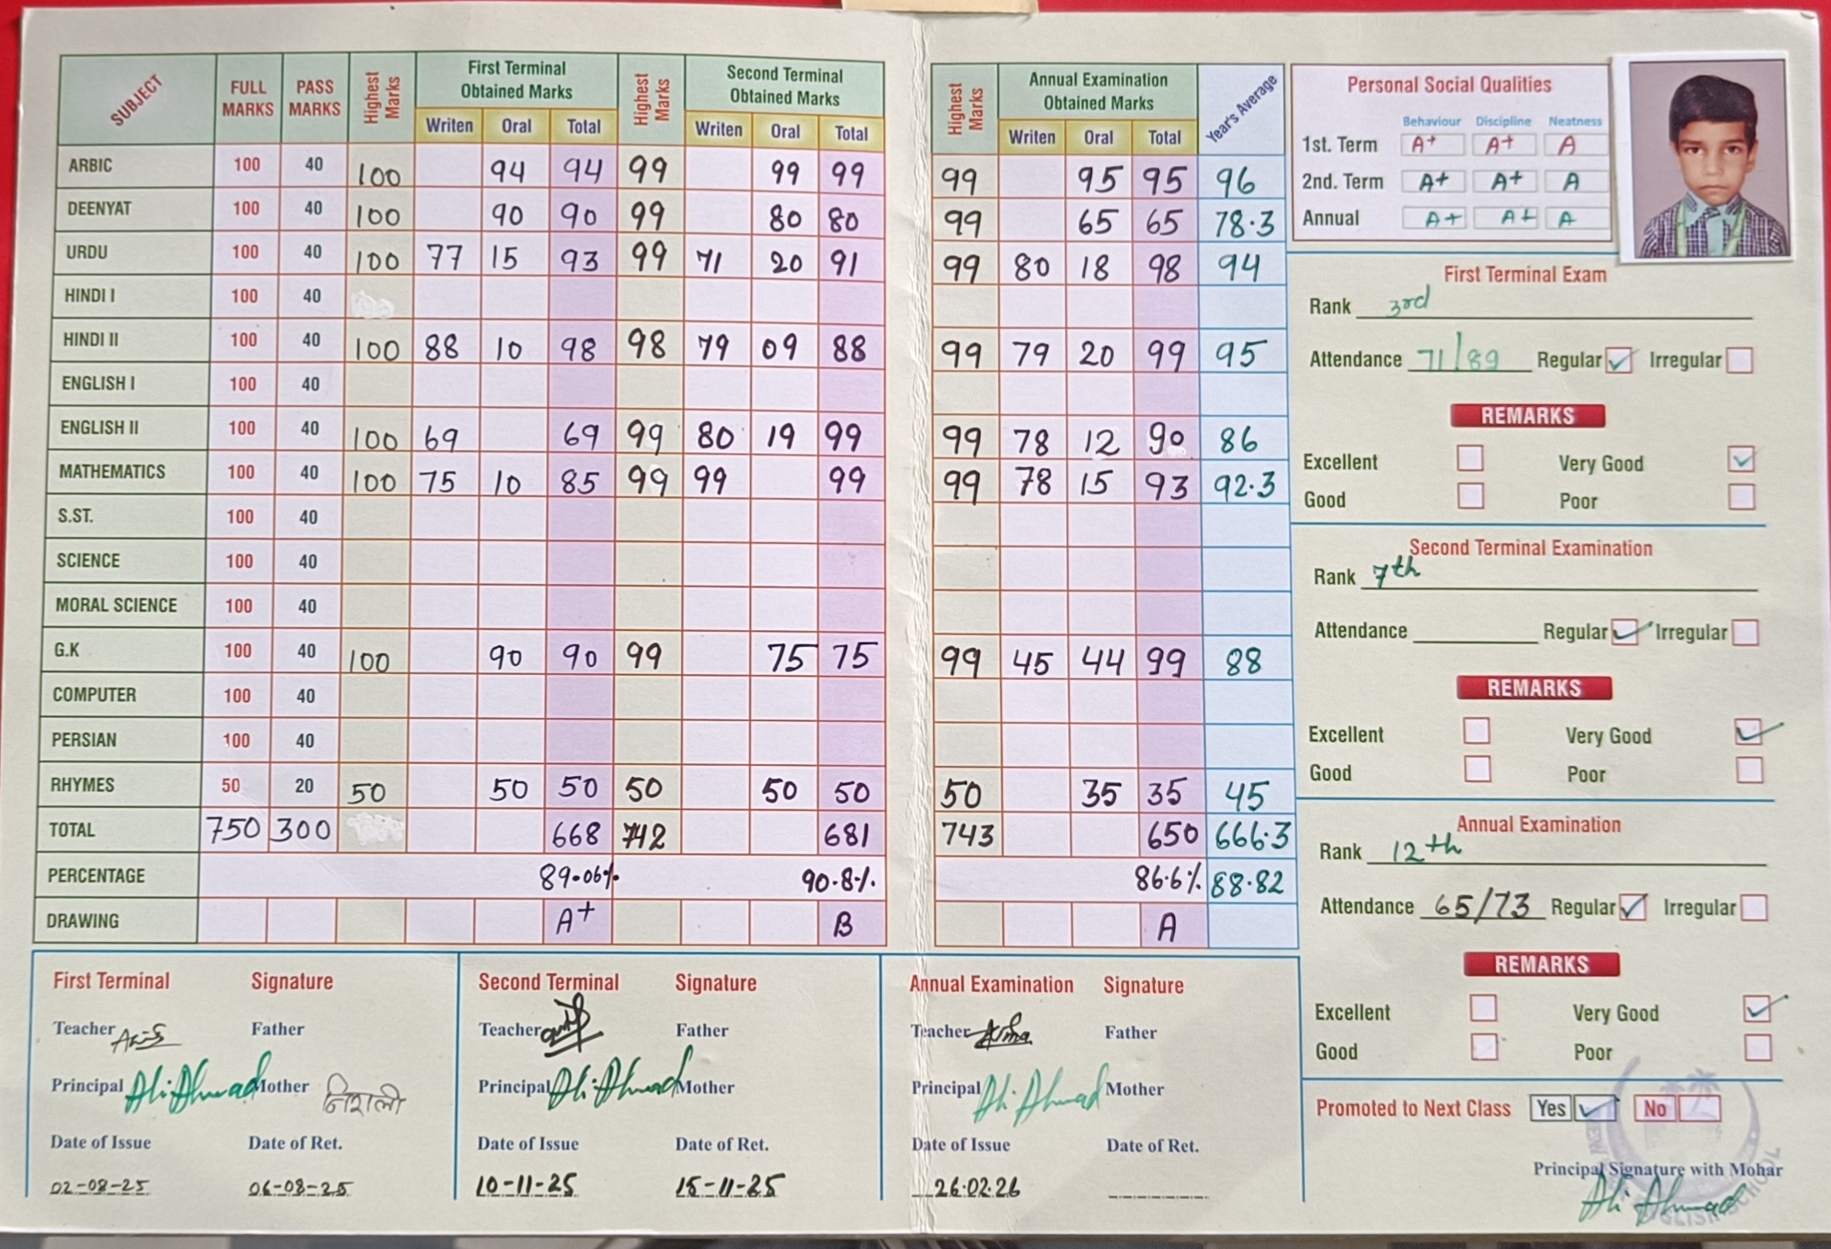 SUBJECT FULL MARKS PASS MARKS Highest Marks First Terminal Obtained Marks Highest Marks Second Terminal Obtained Marks Highest Marks Annual Examination Obtained Marks Year's Average
Writen Oral Total Writen Oral Total Writen Oral Total
ARBIC 100 40 100 94 94 99 99 99 99 95 95 96
DEENYAT 100 40 100 90 90 99 80 80 99 65 65 78.3
URDU 100 40 100 77 15 93 99 71 20 91 99 80 18 98 94
HINDI I 100 40
HINDI II 100 40 100 88 10 98 98 79 09 88 99 79 20 99 95
ENGLISH I 100 40
ENGLISH II 100 40 100 69 69 99 80 19 99 99 78 12 90 86
MATHEMATICS 100 40 100 75 10 85 99 99 99 99 78 15 93 92.3
S.ST. 100 40
SCIENCE 100 40
MORAL SCIENCE 100 40
G.K 100 40 100 90 90 99 75 75 99 45 44 99 88
COMPUTER 100 40
PERSIAN 100 40
RHYMES 50 20 50 50 50 50 50 50 50 35 35 45
TOTAL 750 300 668 742 681 743 650 666.3
PERCENTAGE 89.06% 90.8% 86.6% 88.82
DRAWING A+ B A
First Terminal Signature
Teacher Father
Principal Ali Ahmad Mother निशाली
Date of Issue Date of Ret.
02-08-25 06-08-25
Second Terminal Signature
Teacher Father
Principal Ali Ahmad Mother
Date of Issue Date of Ret.
10-11-25 15-11-25
Annual Examination Signature
Teacher Father
Principal Ali Ahmad Mother
Date of Issue Date of Ret.
26.02.26
Personal Social Qualities
Behaviour Discipline Neatness
1st. Term A+ A+ A
2nd. Term A+ A+ A
Annual A+ A+ A
First Terminal Exam
Rank 3rd
Attendance 71/89 Regular Irregular
REMARKS
Excellent Very Good
Good Poor
Second Terminal Examination
Rank 7th
Attendance Regular Irregular
REMARKS
Excellent Very Good
Good Poor
Annual Examination
Rank 12th
Attendance 65/73 Regular Irregular
REMARKS
Excellent Very Good
Good Poor
Promoted to Next Class Yes No
Principal Signature with Mohar
Ali Ahmad